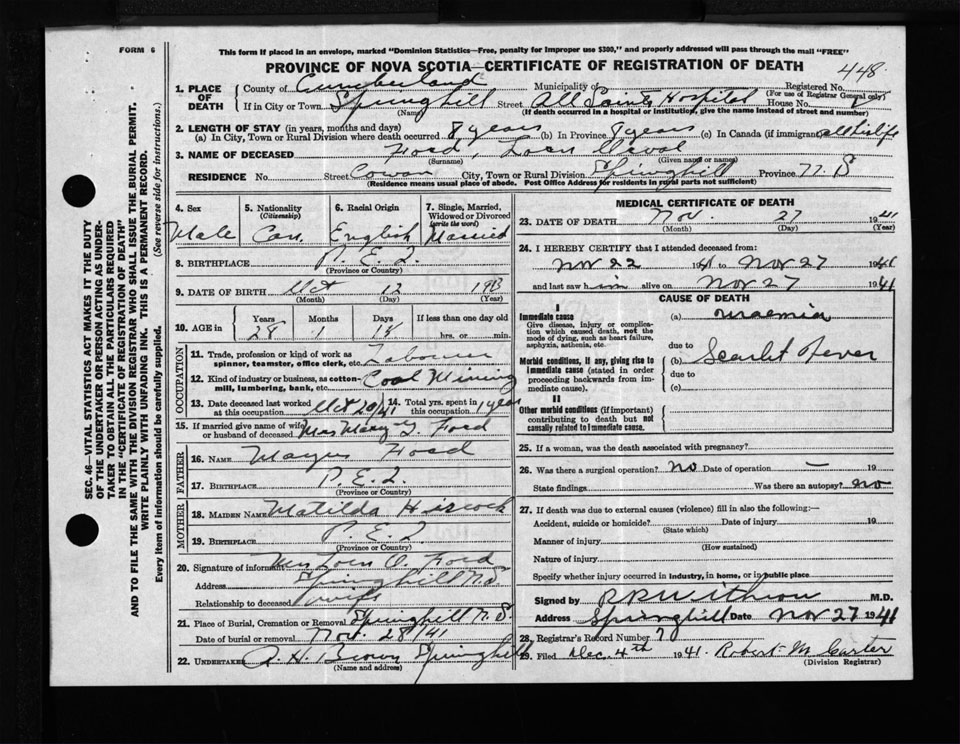 FORM 6
This form if placed in an envelope, marked "Dominion Statistics—Free, penalty for improper use $300," and properly addressed will pass through the mail "FREE"
PROVINCE OF NOVA SCOTIA—CERTIFICATE OF REGISTRATION OF DEATH
448
SEC. 46—VITAL STATISTICS ACT MAKES IT THE DUTY
OF THE UNDERTAKER OR PERSON ACTING AS UNDER-
TAKER TO OBTAIN ALL THE PARTICULARS REQUIRED
IN THE "CERTIFICATE OF REGISTRATION OF DEATH"
AND TO FILE THE SAME WITH THE DIVISION REGISTRAR WHO SHALL ISSUE THE BURIAL PERMIT.
WRITE PLAINLY WITH UNFADING INK. THIS IS A PERMANENT RECORD.
Every item of information should be carefully supplied. (See reverse side for instructions.)
1. PLACE OF DEATH
County of Cumberland Municipality of Registered No.
(For use of Registrar General only)
If in City or Town Springhill Street All Saints Hospital House No.
(Name) (If death occurred in a hospital or institution, give the name instead of street and number)
2. LENGTH OF STAY (in years, months and days)
(a) In City, Town or Rural Division where death occurred 8 years (b) In Province 8 years (c) In Canada (if immigrant) all his life
3. NAME OF DECEASED Ford, Loen
(Surname) (Given name or names)
RESIDENCE No. Street Cowan City, Town or Rural Division Springhill Province N. S
(Residence means usual place of abode. Post Office Address for residents in rural parts not sufficient)
4. Sex
Male
5. Nationality
(Citizenship)
Can
6. Racial Origin
English
7. Single, Married,
Widowed or Divorced
(write the word)
Married
8. BIRTHPLACE P. E. I.
(Province or Country)
9. DATE OF BIRTH Oct 12
(Month) (Day) (Year)
10. AGE in
Years Months Days If less than one day old
28 1 hrs. or min.
OCCUPATION
11. Trade, profession or kind of work as
spinner, teamster, office clerk, etc. Labourer
12. Kind of industry or business, as cotton-
mill, lumbering, bank, etc. Coal Mining
13. Date deceased last worked
at this occupation Oct 20/41
14. Total yrs. spent in
this occupation 1 year
15. If married give name of wife
or husband of deceased Mrs Mary Ford
FATHER
16. NAME Ford
17. BIRTHPLACE P. E. I.
(Province or Country)
MOTHER
18. MAIDEN NAME Matilda Hiscock
19. BIRTHPLACE P. E. I.
(Province or Country)
20. Signature of informant Mrs Loen O. Ford
Address Springhill N S
Relationship to deceased wife
21. Place of Burial, Cremation or Removal Springhill N. S.
Date of burial or removal Nov. 28/41
22. UNDERTAKER A. H. Brown Springhill
(Name and address)
MEDICAL CERTIFICATE OF DEATH
23. DATE OF DEATH Nov. 27 1941
(Month) (Day) (Year)
24. I HEREBY CERTIFY that I attended deceased from:
Nov 22 1941 to Nov 27 1941
and last saw him alive on Nov 27 1941
CAUSE OF DEATH
I
Immediate cause
Give disease, injury or complica-
tion which caused death, not the
mode of dying, such as heart failure,
asphyxia, asthenia, etc.
(a) uraemia
due to
Morbid conditions, if any, giving rise to
immediate cause (stated in order
proceeding backwards from im-
mediate cause).
(b) Scarlet Fever
due to
(c)
II
Other morbid conditions (if important)
contributing to death but not
causally related to immediate cause.
25. If a woman, was the death associated with pregnancy?
26. Was there a surgical operation? no Date of operation — 19
State findings Was there an autopsy? no
27. If death was due to external causes (violence) fill in also the following:—
Accident, suicide or homicide? Date of injury 19
(State which)
Manner of injury
(How sustained)
Nature of injury
Specify whether injury occurred in industry, in home, or in public place
Signed by Withrow M.D.
Address Springhill Date Nov 27 1941
28. Registrar's Record Number
29. Filed Dec. 4th 1941. Robert M Carter
(Division Registrar)